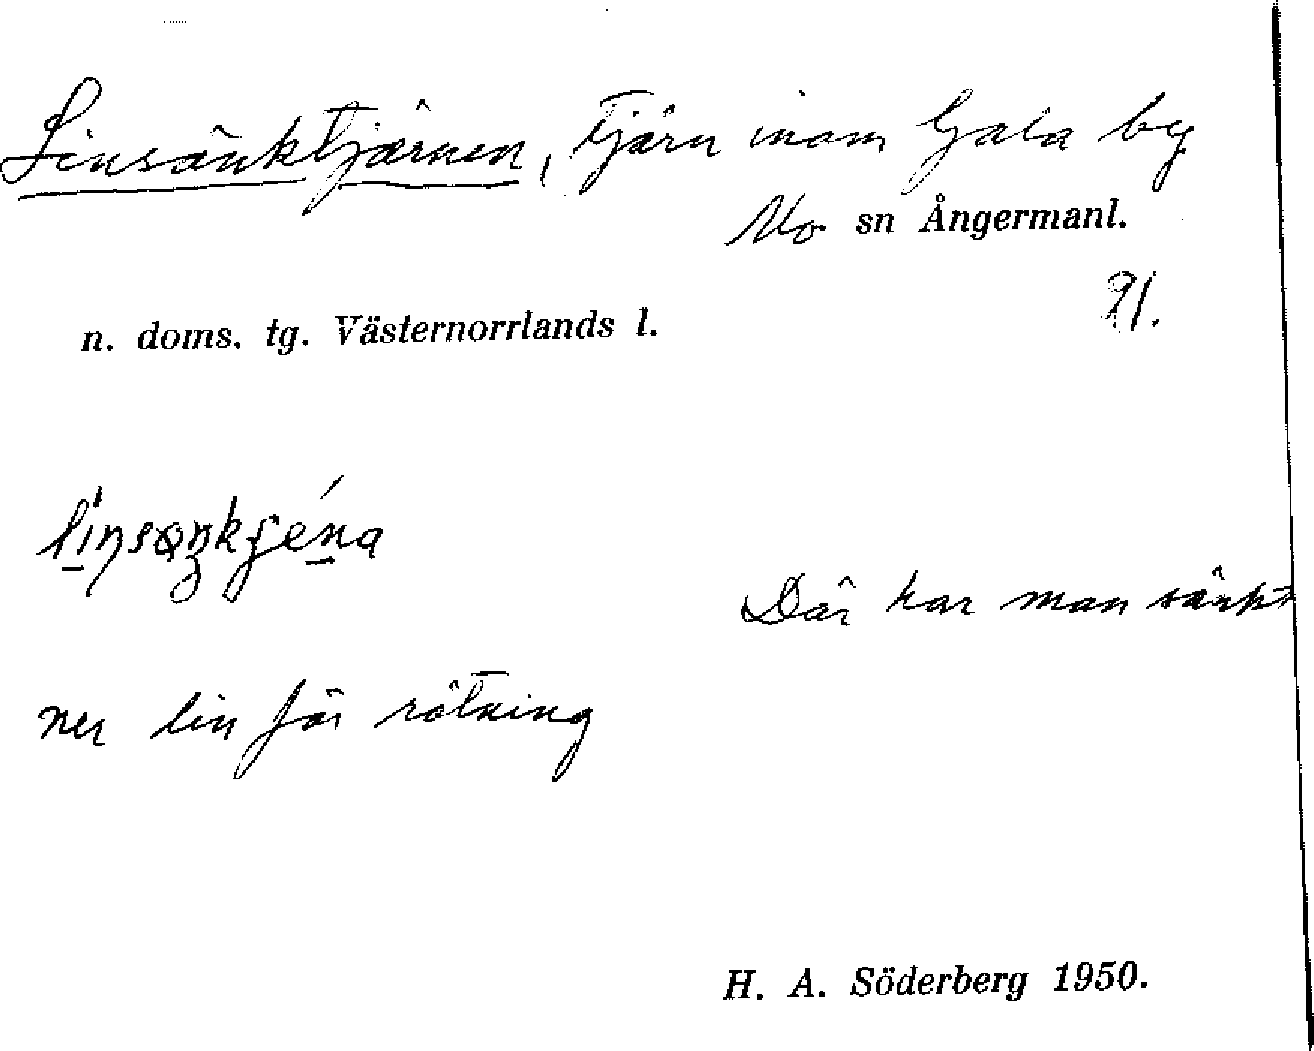 Linsänktjärnen, tjärn inom Gala by
Mo sn Ångermanl.
91.
n. doms. tg. Västernorrlands l.
Där har man sänkt
ner lin för rötning
H. A. Söderberg 1950.